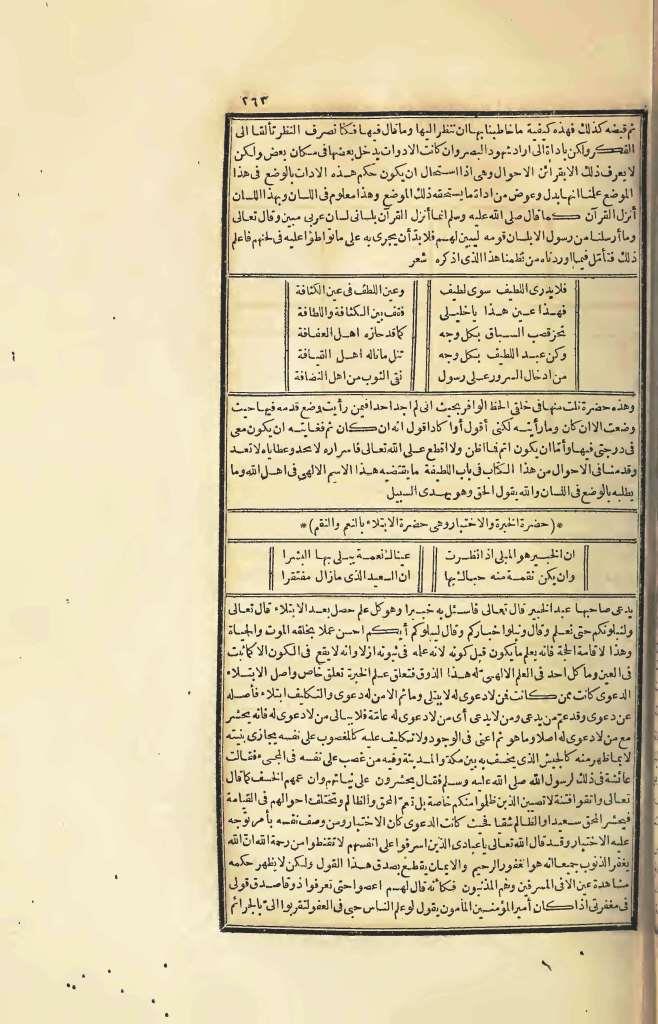 ٢٦٣
ثم قبضه كذلك فهذه كيفية ما خاطبنا بها ان تنظر اليها وما قال فيها فكنا نصرف النظر تألفا الى
الفكر ولكن باداة الى اراد شهود البصر وان كانت الادوات يدخل بعضها فى مكان بعض ولكن
لا يعرف ذلك الا بقرائن الاحوال وهى اذا استحال ان يكون حكم هذه الادات بالوضع فى هذا
الموضع علمنا انها بدل وعوض من اداة ما يستحقه ذلك الموضع وهذا معلوم فى اللسان وبهذا اللسان
أنزل القرآن كما قال صلى الله عليه وسلم انما أنزل القرآن بلسانى لسان عربى مبين وقال تعالى
وما أرسلنا من رسول الا بلسان قومه ليبين لهم فلا بد أن يجرى به على ما تواطؤا عليه فى لحنهم فاعلم
ذلك فتأمل فيما اوردناه من نظمنا هذا الذى اذكره شعر
فلا يدرى اللطيف سوى لطيف وعين اللطف فى عين الكثافة
فهذا عين هذا يا خليلى فقف بين الكثافة واللطافة
تحز قصب السباق بكل وجه كما قد حازه اهل العفافة
وكن عبد اللطيف بكل وجه تنل ما ناله اهل القيافة
من ادخال السرور على رسول نقى الثوب من اهل النضافة
وهذه حضرة نلت منها فى خلقى الحظ الوافر بحيث انى لم اجد احدا فيمن رأيت وضع قدمه فيها حيث
وضعت الا ان كان وما رأيته لكنى أقول أو اكاد اقول انه ان كان ثم فغايته ان يكون معى
فى درجتى فيها وأما ان يكون اتم فما اظن ولا اقطع على الله تعالى فاسراره لا تحد وعطاياه لا تعد
وقد مشا فى الاحوال من هذا الكتاب فى باب اللطيفة ما يقتضيه هذا الاسم الالهى فى اهل الله وما
يطلبه بالوضع فى اللسان والله يقول الحق وهو يهدى السبيل
*(حضرة الخبرة والاختبار وهى حضرة الابتلاء بالنعم والنقم)*
ان الخبير هو المبلى اذا نظرت عينالنعمة يبلى بها البشرا
وان يكن نقمة منه حبالبها ان السعيد الذى مازال مفتقرا
يدعى صاحبها عبد الخبير قال تعالى فاسئل به خبيرا وهو كل علم حصل بعد الابتلاء قال تعالى
ولنبلونكم حتى نعلم وقال ونبلوا خباركم وقال ليبلوكم أيكم احسن عملا بخلقه الموت والحياة
وهذا لاقامة الحجة فانه يعلم ما يكون قبل كونه لانه علمه فى ثبوته ازلا وانه لا يقع فى الكون الا كما ثبت
فى العين وما كل احد فى العلم الالهى له هذا الذوق فتعلق علم الخبرة تعلق خاص واصل الابتلاء
الدعوى كانت ممن كانت فمن لا دعوى له لا يبتلى وما ثم الا من له دعوى والتكليف ابتلاء فأصله
عن دعوى وقد عم من يدعى ومن لا يدعى أى من لا دعوى له عامة فلا يبالى من لا دعوى له فانه يحشر
مع من لا دعوى له اصلا وما هو ثم اعنى فى الوجود ولا تكليف عليه كالمغصوب على نفسه يجازى بنيته
لا بما ظهر منه كالجيش الذى يخسف به بين مكة والمدينة وفيه من غصب على نفسه فى المجىء فقالت
عائشة فى ذلك لرسول الله صلى الله عليه وسلم فقال يحشرون على نياتهم وان عمهم الخسف كما قال
تعالى واتقوا فتنة لا تصيبن الذين ظلموا منكم خاصة بل تعم المحق والظالم وتختلف احوالهم فى القيامة
فيحشر المحق سعيدا والظالم شقيا فحيث كانت الدعوى كان الاختبار ومن وصف نفسه بأمر توجه
عليه الاختبار وقد قال الله تعالى يا عبادى الذين اسرفوا على انفسهم لا تقنطوا من رحمة الله ان الله
يغفر الذنوب جميعا انه هو الغفور الرحيم والايمان يقطع بصدق هذا القول ولكن لا يظهر حكمه
مشاهدة عين الا فى المسرفين وهم المذنبون فكأنه قال لهم اعصوا حتى تعرفوا ذوقا صدق قولى
فى مغفرتى اذا كان أمير المؤمنين المأمون يقول لو علم الناس حبى فى العفو لتقربوا الى بالجرائم